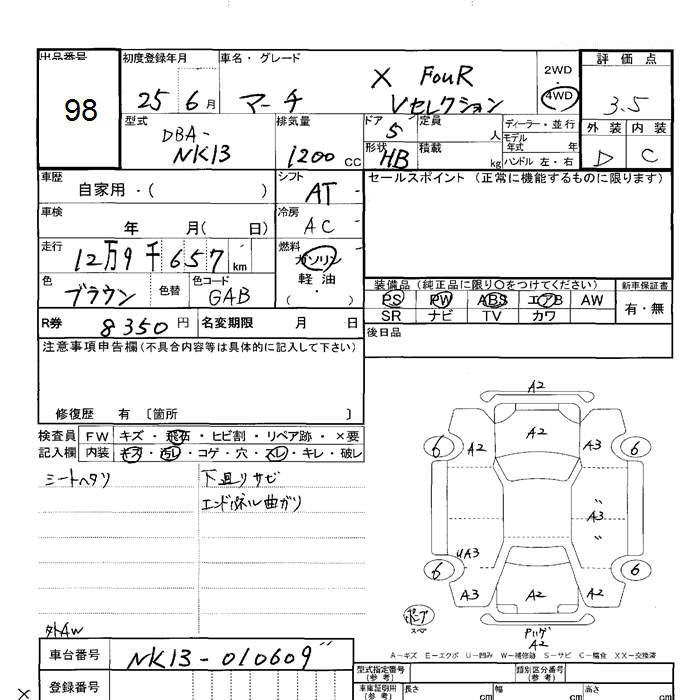 出品番号 初度登録年月 車名・グレード 2WD 評価点
98 25 6月 マーチ X FouR Vセレクション 4WD 3.5
型式 DBA- NK13 排気量 1200 CC ドア 5 定員 人 ディーラー・並行 外装 内装
形状 HB 積載 kg モデル年式 年 ハンドル 左・右 D C
車歴 自家用・( ) シフト AT セールスポイント (正常に機能するものに限ります)
車検 年 月( 日) 冷房 AC
走行 12万9千657 km 燃料 ガソリン
色 ブラウン 色替 色コード GAB 軽・油 ( )
装備品 (純正品に限り○をつけてください) 新車保証書
PS PW ABS エアB AW 有・無
SR ナビ TV カワ
R券 8350円 名変期限 月 日 後日品
注意事項申告欄 (不具合内容等は具体的に記入して下さい)
修復歴 有 〔箇所 〕
検査員 FW キズ・飛石・ヒビ割・リペア跡・×要
記入欄 内装 キズ・汚レ・コゲ・穴・スレ・キレ・破レ
シートヘタリ 下廻リサビ
エンドパネル曲ガリ
A2
A2
6 A2 A3 6
A3
UA3
6 6
A3 A2 A2
外AW
A2
A-キズ E-エクボ U-凹み W-補修跡 S-サビ C-腐食 XX-交換済
車台番号 NK13-010609
型式指定番号(参考) 類別区分番号(参考)
登録番号 車庫証明用(参考) 長さ cm 幅 cm 高さ cm
×